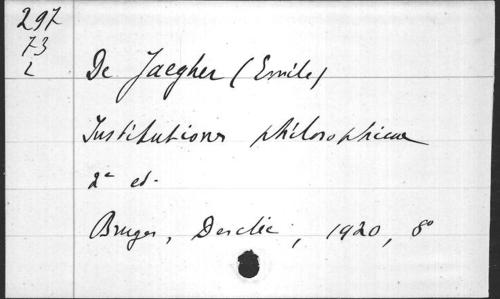 297
73
2
De Jaegher (Emile)
Institutiones philosophicae
2e ed.
Bruges, Desclée, 1920, 8°